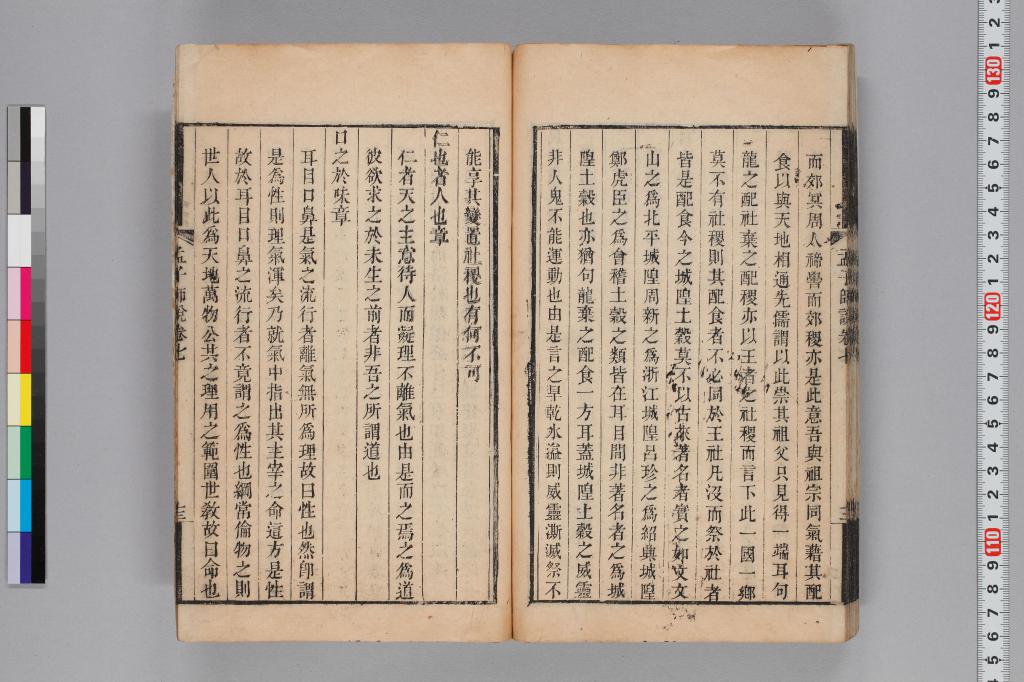 而郊冥周人禘嚳而郊稷亦是此意吾與祖宗同氣藉其配
食以與天地相通先儒謂以此崇其祖父只見得一端耳句
龍之配社棄之配稷亦以王者之社稷而言下此一國一鄉
莫不有社稷則其配食者不必同於王社凡沒而祭於社者
皆是配食今之城隍土穀莫不以古來著名者實之如文文
山之爲北平城隍周新之爲浙江城隍呂珍之爲紹興城隍
鄭虎臣之爲會稽土穀之類皆在耳目間非著名者之爲城
隍土穀也亦猶句龍棄之配食一方耳蓋城隍土穀之威靈
非人鬼不能運動也由是言之旱乾水溢則威靈澌滅祭不
能享其變置社稷也有何不可
仁也者人也章
仁者天之主意待人而凝理不離氣也由是而之焉之爲道
彼欲求之於未生之前者非吾之所謂道也
口之於味章
耳目口鼻是氣之流行者離氣無所爲理故曰性也然卽謂
是爲性則理氣渾矣乃就氣中指出其主宰之命這方是性
故於耳目口鼻之流行者不竟謂之爲性也綱常倫物之則
世人以此爲天地萬物公共之理用之範圍世敎故曰命也
孟子師說卷七